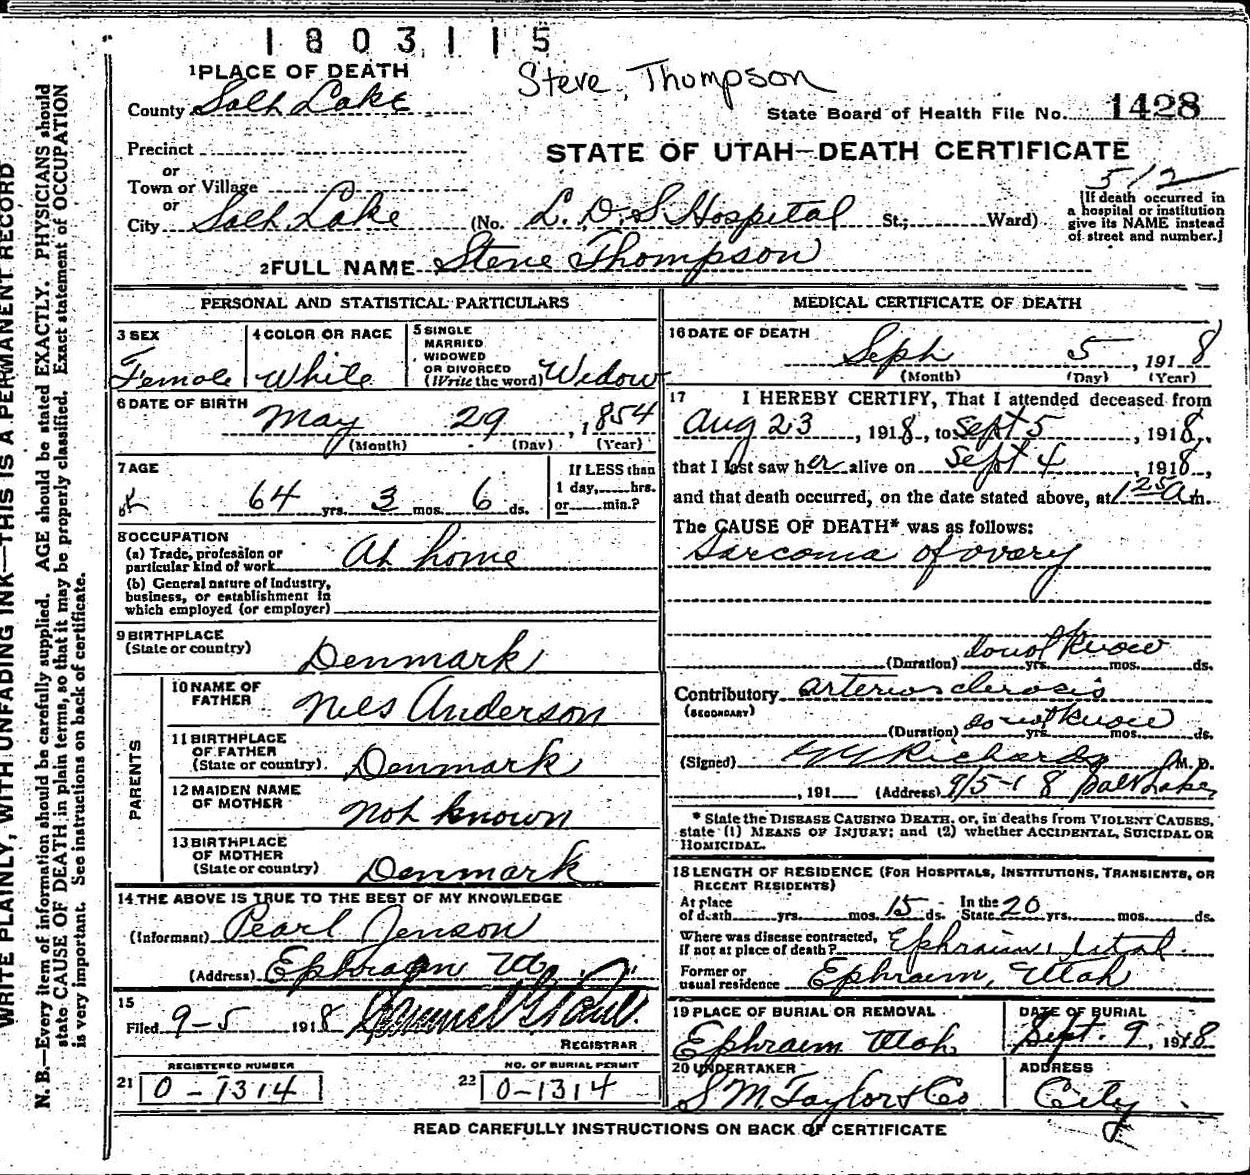 1803115
Steve Thompson
State Board of Health File No. 1428
STATE OF UTAH—DEATH CERTIFICATE
512
1 PLACE OF DEATH
County Salt Lake
Precinct
or
Town or Village
or
City Salt Lake (No. L. D. S. Hospital St.; Ward)
[If death occurred in
a hospital or institution
give its NAME instead
of street and number.]
2 FULL NAME Stene Thompson
PERSONAL AND STATISTICAL PARTICULARS
3 SEX
Female
4 COLOR OR RACE
White
5 SINGLE
MARRIED
WIDOWED
OR DIVORCED
(Write the word) Widow
6 DATE OF BIRTH
May 29, 1854
(Month) (Day) (Year)
7 AGE
64 yrs. 3 mos. 6 ds.
If LESS than
1 day, hrs.
or min.?
8 OCCUPATION
(a) Trade, profession or
particular kind of work At home
(b) General nature of Industry,
business, or establishment in
which employed (or employer)
9 BIRTHPLACE
(State or country) Denmark
PARENTS
10 NAME OF
FATHER Niels Anderson
11 BIRTHPLACE
OF FATHER
(State or country). Denmark
12 MAIDEN NAME
OF MOTHER Not known
13 BIRTHPLACE
OF MOTHER
(State or country) Denmark
14 THE ABOVE IS TRUE TO THE BEST OF MY KNOWLEDGE
(Informant) Pearl Jenson
(Address) Ephraim Ut.
15
Filed 9-5 1918
REGISTRAR
REGISTERED NUMBER
21 0-1314
NO. OF BURIAL PERMIT
22 0-1314
MEDICAL CERTIFICATE OF DEATH
16 DATE OF DEATH
Sept 5, 1918
(Month) (Day) (Year)
17 I HEREBY CERTIFY, That I attended deceased from
Aug 23, 1918, to Sept 5, 1918,
that I last saw her alive on Sept 4, 1918,
and that death occurred, on the date stated above, at 1 25 A m.
The CAUSE OF DEATH* was as follows:
Sarcoma of ovary
(Duration) do not know yrs. mos. ds.
Contributory arteriosclerosis
(SECONDARY)
(Duration) do not know yrs. mos. ds.
(Signed) G G Richards M. D.
, 191 (Address) 9/5-18 Salt Lake
* State the DISEASE CAUSING DEATH, or, in deaths from VIOLENT CAUSES,
state (1) MEANS OF INJURY; and (2) whether ACCIDENTAL, SUICIDAL OR
HOMICIDAL.
18 LENGTH OF RESIDENCE (FOR HOSPITALS, INSTITUTIONS, TRANSIENTS, OR
RECENT RESIDENTS)
At place
of death yrs. mos. 15 ds. In the
State 20 yrs. mos. ds.
Where was disease contracted,
if not at place of death? Ephraim, Utah
Former or
usual residence Ephraim, Utah
19 PLACE OF BURIAL OR REMOVAL
Ephraim Utah
DATE OF BURIAL
Sept. 9, 1918
20 UNDERTAKER
S. M. Taylor & Co
ADDRESS
City
READ CAREFULLY INSTRUCTIONS ON BACK OF CERTIFICATE
WRITE PLAINLY, WITH UNFADING INK—THIS IS A PERMANENT RECORD
N. B.—Every item of information should be carefully supplied. AGE should be stated EXACTLY. PHYSICIANS should
state CAUSE OF DEATH in plain terms, so that it may be properly classified. Exact statement of OCCUPATION
is very important. See instructions on back of certificate.